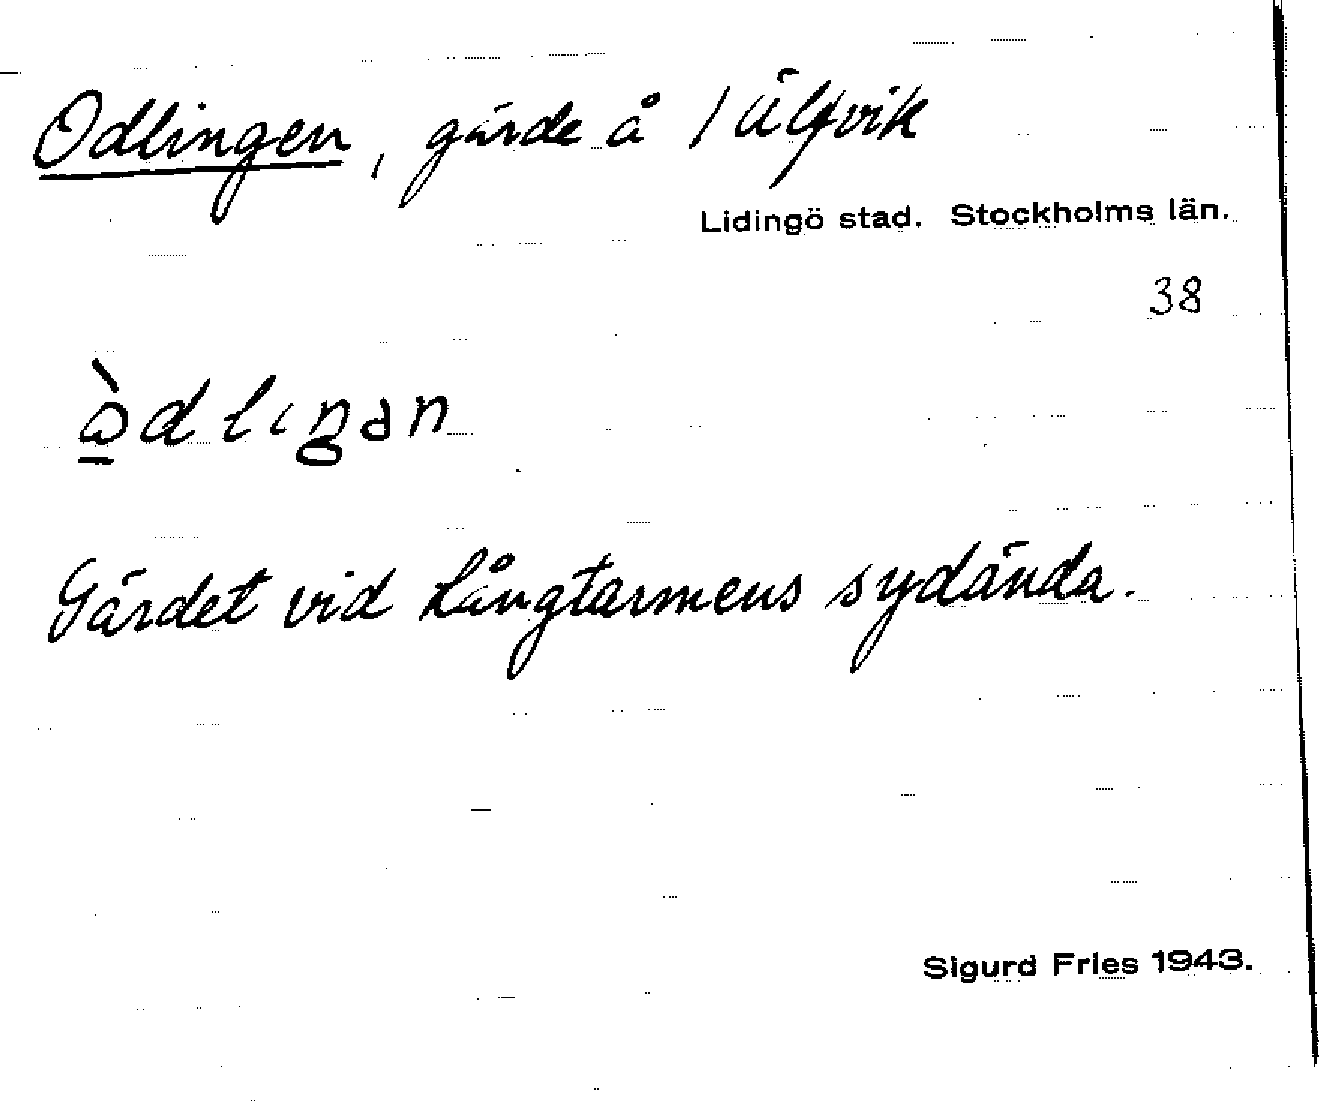 Odlingen, gärde å 1 Älfvik
Lidingö stad. Stockholms län.
38
ὼ̲dlıŋən
Gärdet vid Långtarmens sydända.
Sigurd Fries 1943.